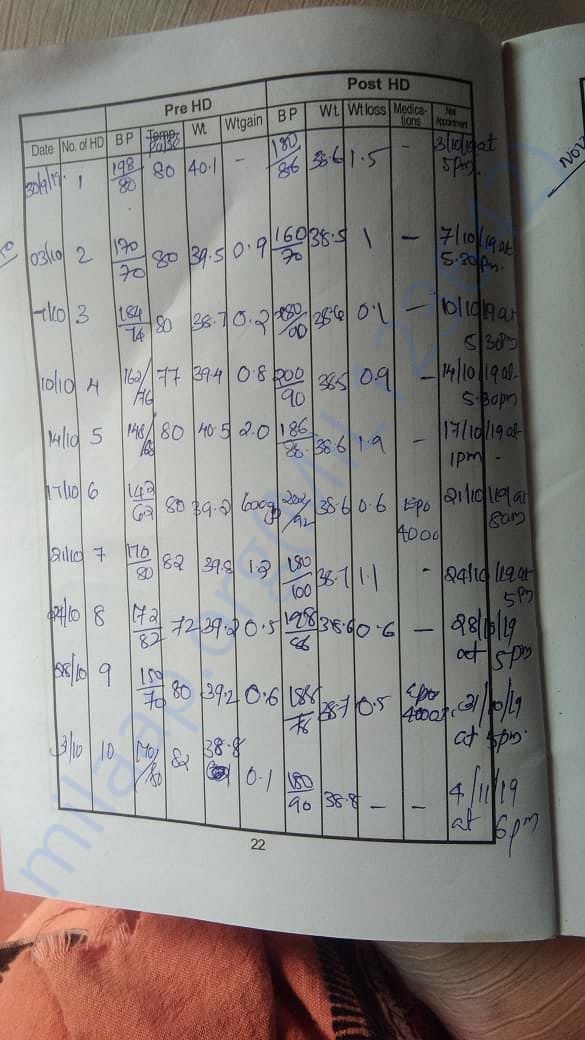 Pre HD Post HD
Date No. of HD B P Temp. Pulse Wt. Wtgain B P Wt. Wt loss Medica-tions Next Appointment
30/9/19. 1 198/80 80 40.1 - 180/86 38.6 1.5 - 3/10/19 at 5pm.
03/10 2 170/70 80 39.5 0.9 160/70 38.5 1 - 7/10/19 at 5.30pm.
7/10 3 184/74 80 38.7 0.2 38.6 0.1 - 10/10/19 at 5.30pm
10/10 4 162/76 77 39.4 0.8 200/90 38.5 0.9 - 14/10/19 at 5.30pm
14/10 5 80 40.5 2.0 186/88 38.6 1.9 - 17/10/19 at 1pm -
17/10 6 142/62 80 39.2 600g 202/92 38.6 0.6 Epo 4000 21/10/19 at 8am
21/10 7 170/80 82 39.8 1.2 180/100 38.7 1.1 - 24/10/19 at 5pm
24/10 8 172/82 72 39.2 0.5 198/86 38.6 0.6 - 28/10/19 at 5pm
28/10 9 150/70 80 39.2 0.6 186/76 38.7 0.5 Epo 4000 31/10/19 at 5pm.
10 170/80 82 38.8 0.1 180/90 38.8 - - 4/11/19 at 6pm
22
milaap.org